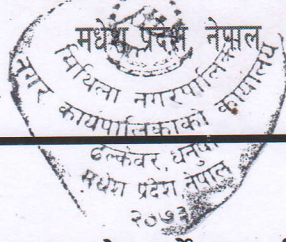 मधेश प्रदेश नेपाल
मिथिला नगरपालिका
नगर कार्यपालिकाको कार्यालय
ढल्केवर, धनुषा
मधेश प्रदेश नेपाल
२०७३